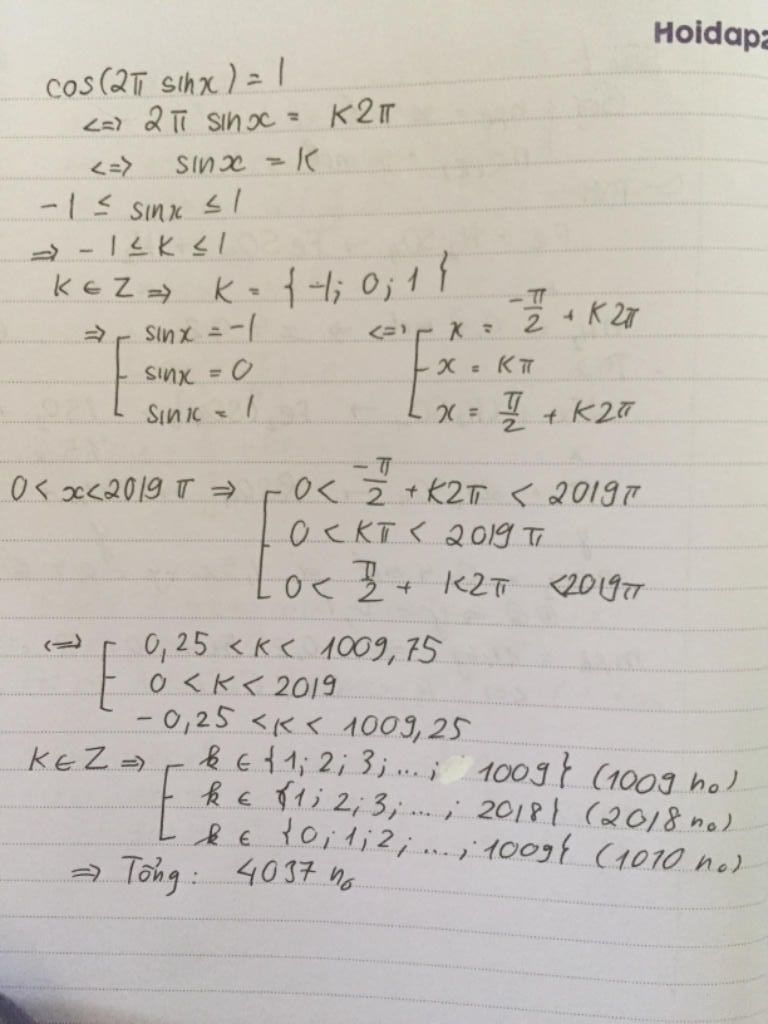 Hoidapz
cos(2π sinx) = 1
<=> 2π sinx = K2π
<=> sinx = K
-1 ≤ sinx ≤ 1
=> -1 ≤ K ≤ 1
K ∈ Z => K = {-1; 0; 1}
=> [ sinx = -1 <=> [ x = -π/2 + K2π
sinx = 0 x = Kπ
sinx = 1 x = π/2 + K2π
0 < x < 2019π => [ 0 < -π/2 + K2π < 2019π
0 < Kπ < 2019π
0 < π/2 + K2π < 2019π
<=> [ 0,25 < K < 1009,75
0 < K < 2019
-0,25 < K < 1009,25
K ∈ Z => [ k ∈ {1; 2; 3; ...; 1009} (1009 no)
k ∈ {1; 2; 3; ...; 2018} (2018 no)
k ∈ {0; 1; 2; ...; 1009} (1010 no)
=> Tổng: 4037 no